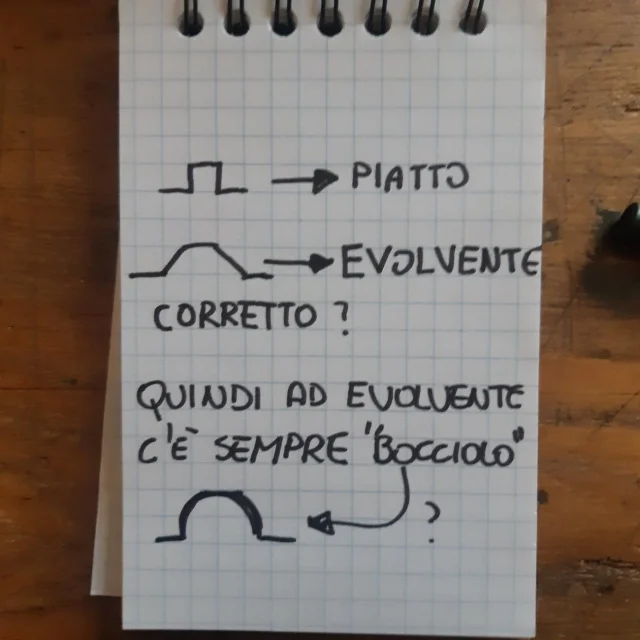 PIATTO
EVOLVENTE
CORRETTO ?
QUINDI AD EVOLVENTE
C'È SEMPRE "BOCCIOLO"
?